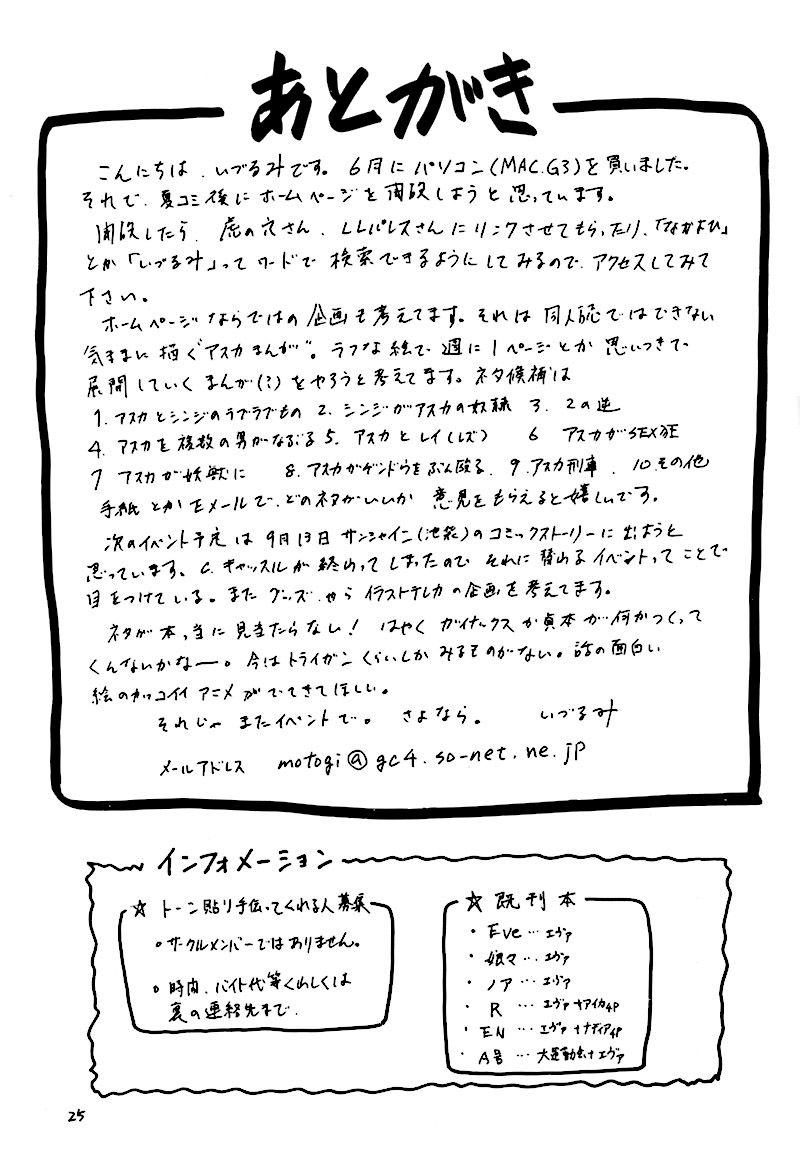 あとがき
こんにちは、いづるみです。6月にパソコン(MAC.G3)を買いました。
それで、夏コミ後にホームページを開設しようと思っています。
開設したら、虎の穴さん、LLパレスさんにリンクさせてもらったり、「なかよひ」
とか「いづるみ」ってワードで検索できるようにしてみるので、アクセスしてみて
下さい。
ホームページならではの企画も考えてます。それは同人誌ではできない
気ままに描く"アスカまんが"。ラフな絵で週に1ページとか思いつきで
展開していくまんが(?)をやろうと考えてます。ネタ候補は
1.アスカとシンジのラブラブもの 2.シンジがアスカの奴隷 3.2の逆
4.アスカを複数の男がなぶる 5.アスカとレイ(レズ) 6 アスカがSEX狂
7 アスカが妖獣に 8.アスカがゲンドウをぶん殴る. 9.アスカ刑事. 10.その他
手紙とかEメールで、どのネタがいいか意見をもらえると嬉しいです。
次のイベント予定は9月13日サンシャイン(池袋)のコミックストーリーに出ようと
思っています。C.キャッスルが終わってしまったので それに替わるイベントってことで
目をつけている。またグッズやらイラストテレカの企画を考えてます。
ネタが本っ当に見当たらない! はやくガイナックスか貞本が何かつくって
くんないかなー。今はトライガンくらいしかみるものがない。話の面白い
絵のカッコイイアニメがでてきてほしい。
それじゃまたイベントで。さよなら。 いづるみ
メールアドレス motogi@gc4.so-net.ne.jp
インフォメーション
☆ トーン貼り手伝ってくれる人募集
○サークルメンバーではありません。
○時間、バイト代等くわしくは
裏の連絡先まで.
☆ 既刊本
・Eve…エヴァ
・娘々…エヴァ
・ノア…エヴァ
・R …エヴァ+アイカ4P
・EN …エヴァ+ナディア4P
・A号 …大運動会+エヴァ
25